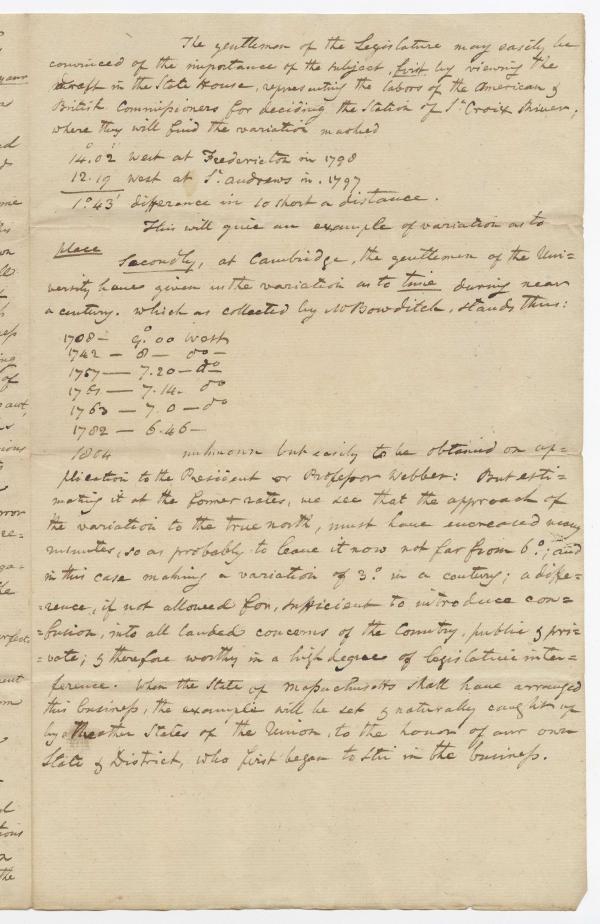 The gentlemen of the Legislature may easily be
convinced of the importance of the subject, first by viewing the
in the State House, representing the labors of the American &
British Commissioners for deciding the Station of St. Croix River,
where they will find the variation marked
14.° 02' west at Fredericton in 1798
12. 19 west at St. Andrews in. 1797
1.° 43' difference in so short a distance.
This will give an example of variation as to
place
Secondly, at Cambridge, the gentlemen of the Uni=
versity have given us the variation as to time during near
a century. which as collected by Mr Bowditch, stands thus:
1708 — 9.° 00 West
1742 — 8 — do —
1757 — 7.20 — do
1761 — 7.14. do
1763 — 7.0 — do
1782 — 6.46 —
1804 unknown but easily to be obtained on ap=
plication to the President or Professor Webber: But esti=
mating it at the former rates, we see that the approach of
the variation to the true north, must have encreased many
minutes, so as probably to leave it now not far from 6.°; and
in this case making a variation of 3.° in a century; a diffe=
=rence, if not allowed for, sufficient to introduce con=
=fusion, into all landed concerns of the Country, public & pri=
=vate; & therefore worthy in a high degree of legislative inter=
ference. When the State of Massachusetts shall have arranged
this business, the example will be set & naturally caught up
by other States of the Union, to the honor of our own
State & District, who first began to stir in the business.